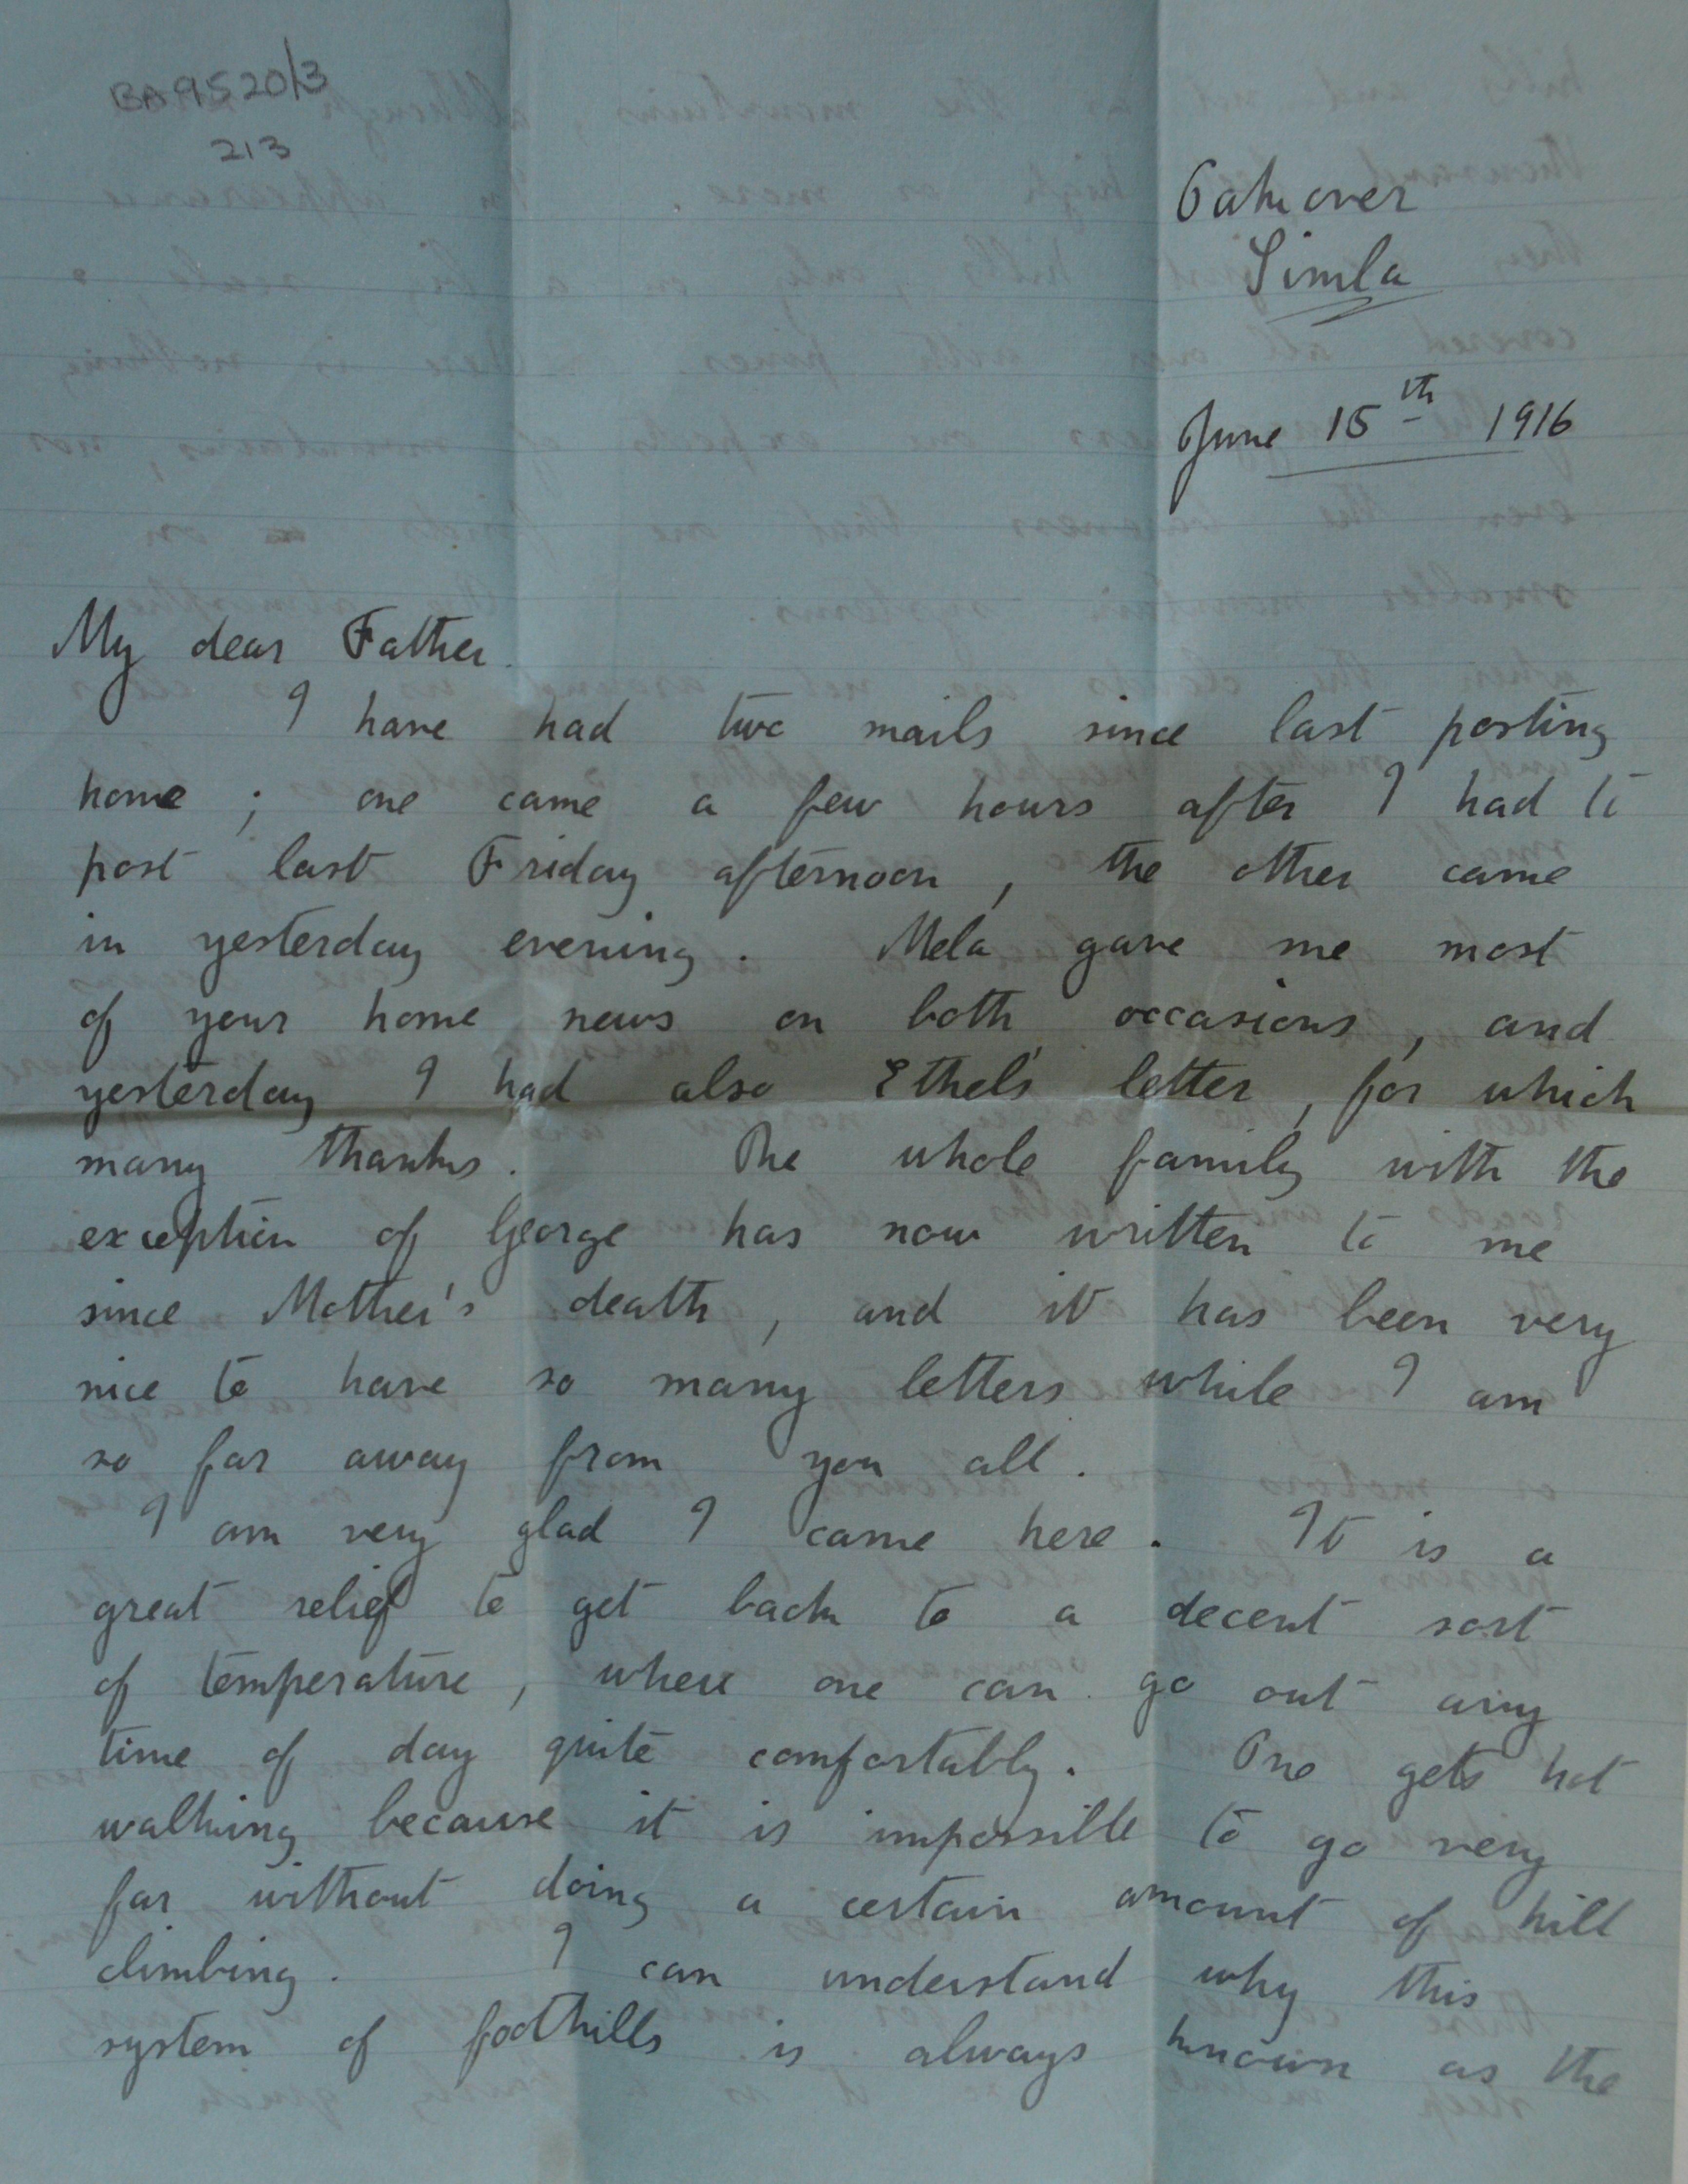 BA9520/3
213
Oakover
Simla
June 15th 1916
My dear Father.
I have had two mails since last posting
home ; one came a few hours after I had to
post last Friday afternoon , the other came
in yesterday evening . Mela gave me most
of your home news on both occasions , and
yesterday I had also Ethel's letter , for which
many thanks . The whole family with the
exception of George has now written to me
since Mother's death , and it has been very
nice to have so many letters while I am
so far away from you all .
I am very glad I came here . It is a
great relief to get back to a decent sort
of temperature , where one can go out any
time of day quite comfortably . One gets hot
walking because it is impossible to go very
far without doing a certain amount of hill
climbing . I can understand why this
system of foothills is always known as the